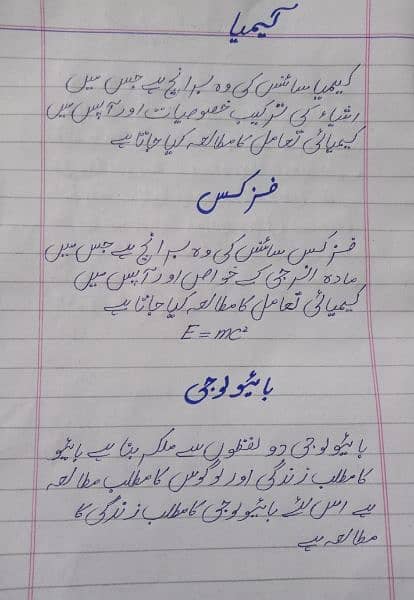 کیمیا
کیمیا سائنس کی وہ برانچ ہے جس میں
اشیاء کی ترکیب خصوصیات اور آپس میں
کیمیائی تعامل کا مطالعہ کیا جاتا ہے
فزکس
فزکس سائنس کی وہ برانچ ہے جس میں
مادہ انرجی کے خواص اور آپس میں
کیمیائی تعامل کا مطالعہ کیا جاتا ہے
E = mc²
بائیولوجی
بائیولوجی دو لفظوں سے ملکر بنا ہے بائیو
کا مطلب زندگی اور لوگوس کا مطلب مطالعہ
ہے اس لئے بائیولوجی کا مطلب زندگی کا
مطالعہ ہے